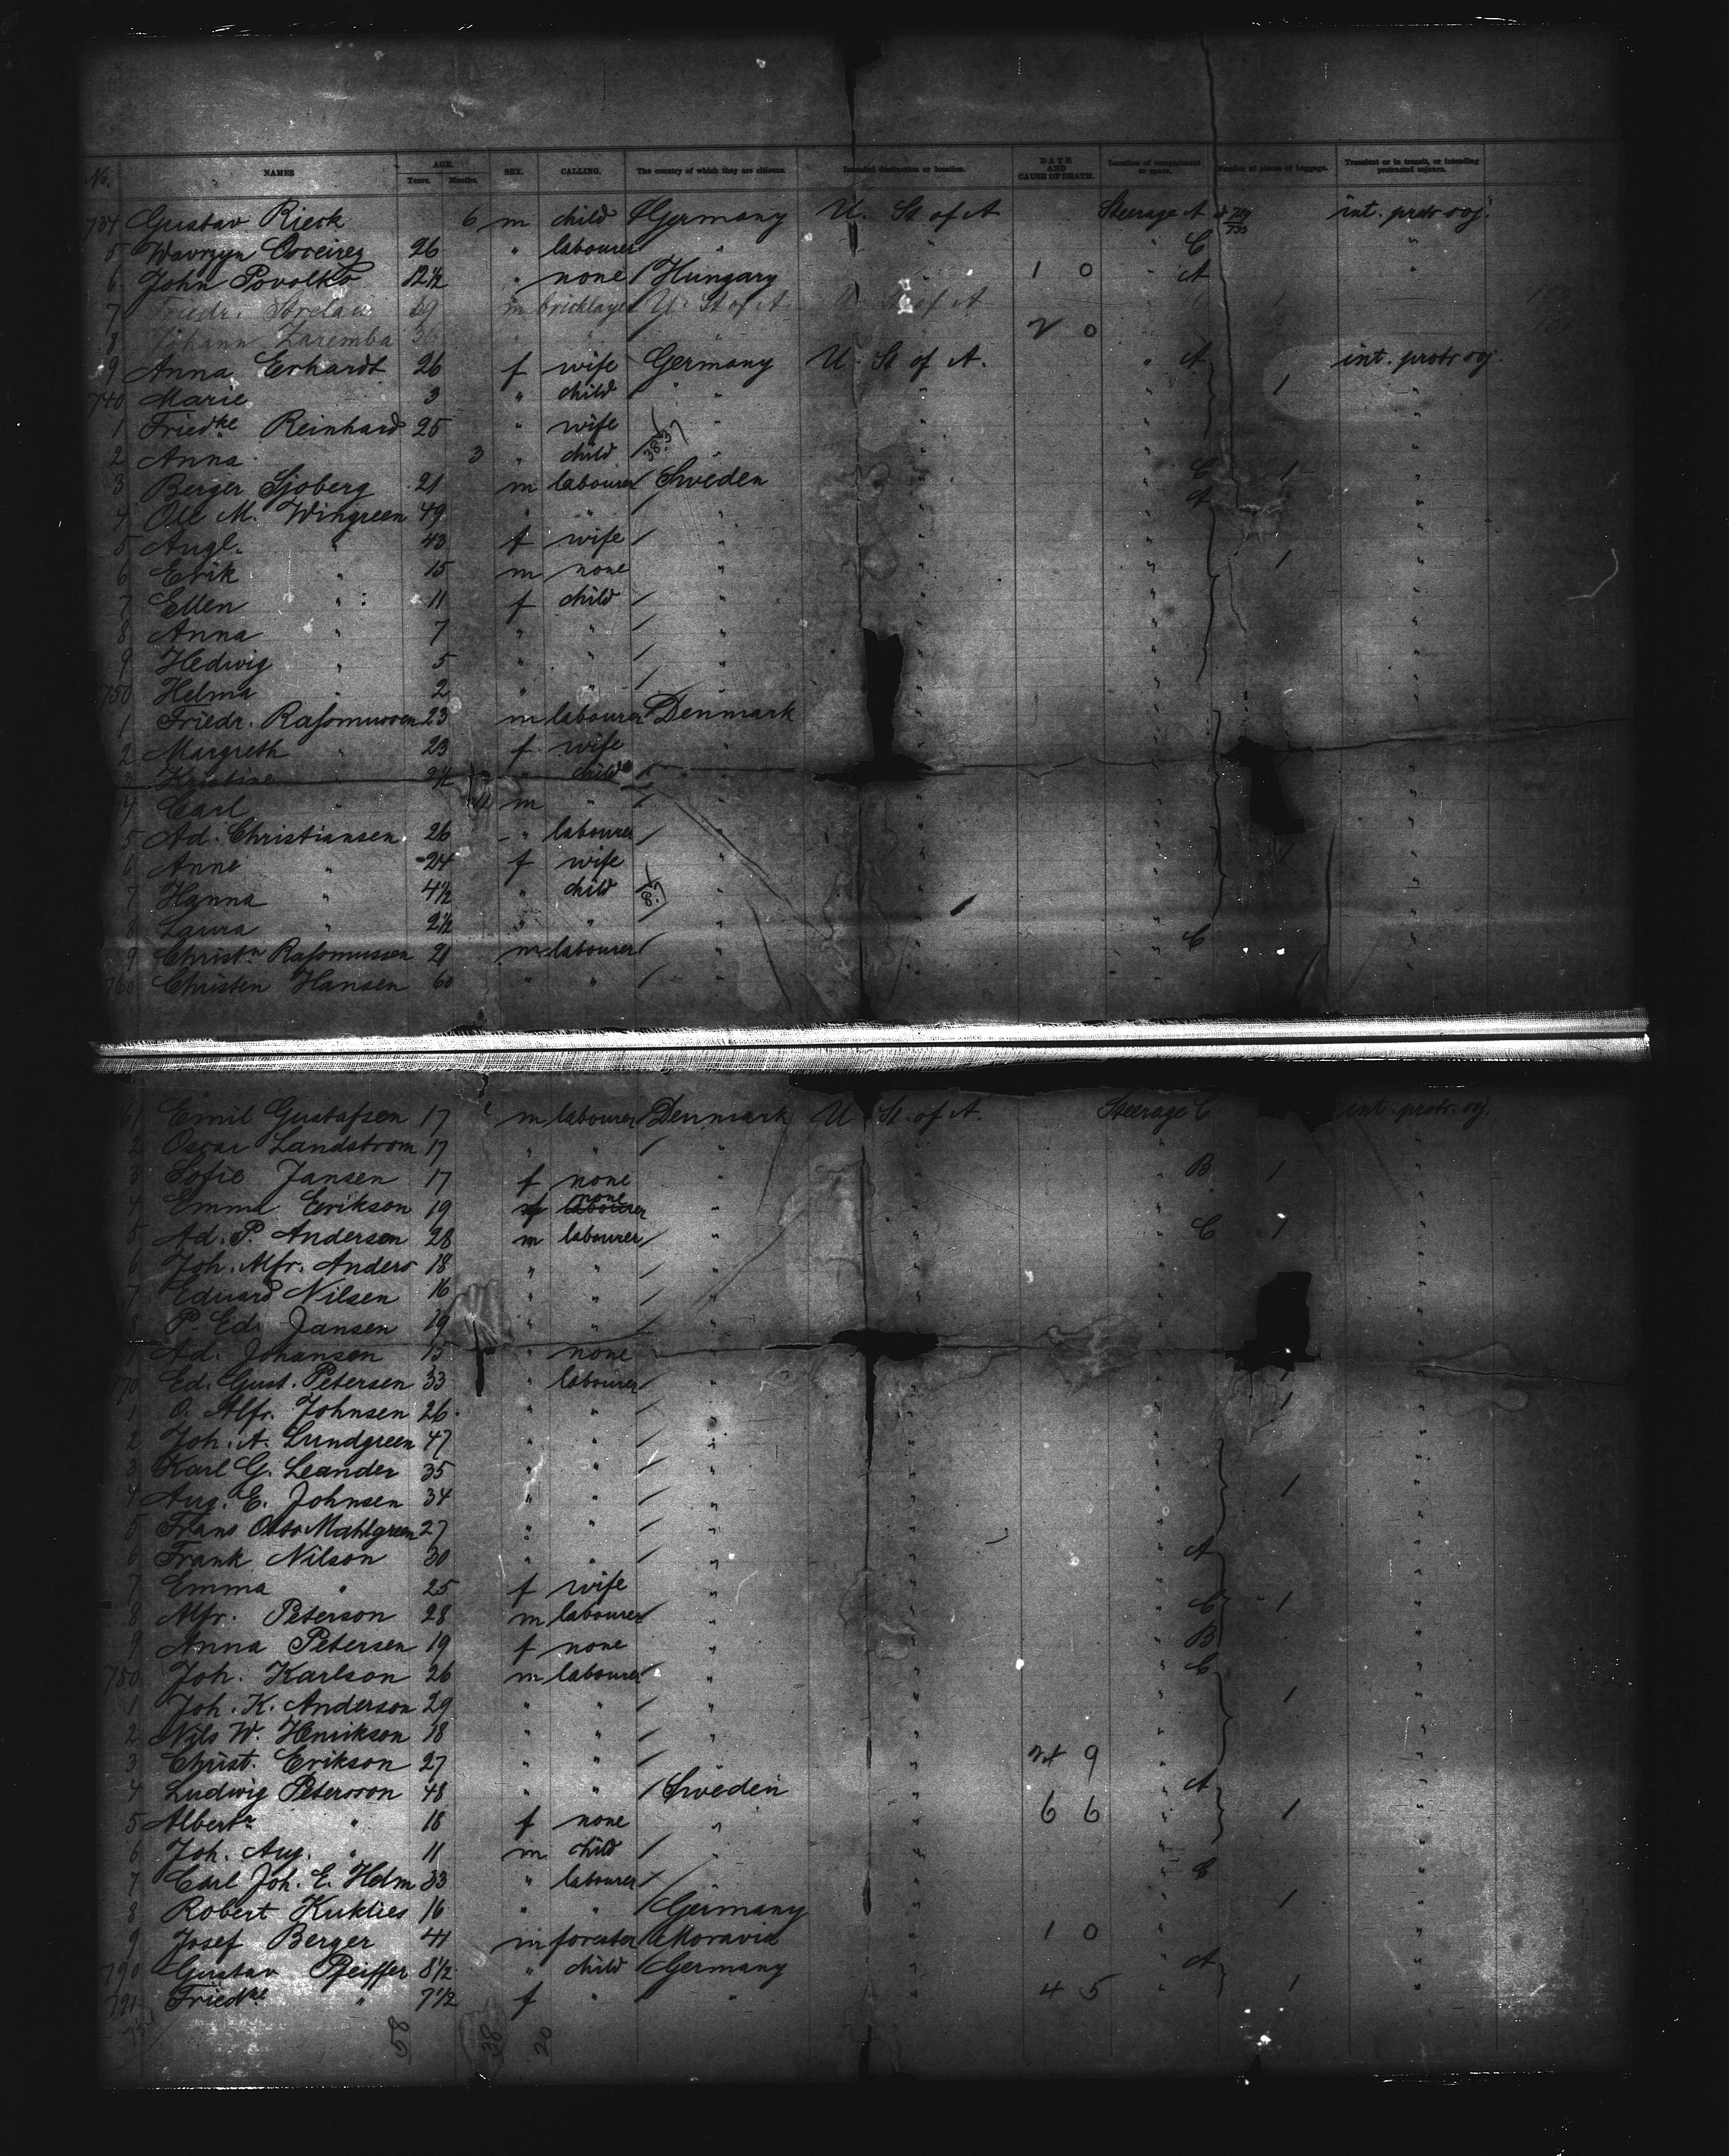 No. NAMES AGE. Years. Months. SEX. CALLING. The country of which they are citizens. Intended destination or location. DATE AND CAUSE OF DEATH. Location of compartment or space. Number of pieces of baggage. Transient or in transit, or intending protracted sojourn.
734 Gustav Rieck 6 m child Germany U. St of A Steerage A int. protr. soj.
5 Wavrzyn 26 " labourer " " " C "
6 John Povolko 12½ " none Hungary " 1 0 " A "
7 Friedr. Strelau 39 m bricklayer U. St of A U. St of A 1
8 Johann Zaremba 36 " " " 2 0
9 Anna Erhardt 26 f wife Germany U. St of A. " A int. protr. soj.
740 Marie 3 " child " " " 1 "
1 Friedke Reinhard 25 " wife " " " "
2 Anna 3 " child " " " "
3 Berger Sjoberg 21 m labourer Sweden " " C 1 "
4 Ole M. Wingreen 49 " " " " " A "
5 Augl. " 43 f wife " " " "
6 Erik " 15 m none " " " 1 "
7 Ellen " 11 f child " " " "
8 Anna " 7 " " " " " "
9 Hedwig " 5 " " " " " "
750 Helma " 2 " " " " " "
1 Friedr. Rassmussen 23 m labourer Denmark " " "
2 Margreth " 23 f wife " " " "
3 Kristine " 2½ " child " " " "
4 Carl " 11 m " " " " "
5 Ad. Christiansen 26 " labourer " " " "
6 Anne " 24 f wife " " " 1 "
7 Hanna " 4½ " child " " " "
8 Laura " 2½ " " " " " "
9 Christn Rassmussen 21 m labourer " " " C "
760 Christen Hansen 60 " " " " " "
761 Emil Gustafsen 17 m labourer Denmark U. St. of A. Steerage C int. protr. soj.
2 Oscar Landstrom 17 " " " " " "
3 Sofie Jansen 17 f none " " " B 1 "
4 Emma Erikson 19 f none " " " "
5 Ad. P. Andersen 28 m labourer " " " C 1 "
6 Joh. Alfr. Anders 18 " " " " " "
7 Eduard Nilsen 16 " " " " " "
8 P. Ed. Jansen 19 " " " " " "
9 Ad. Johansen 15 " none " " " "
770 Ed. Gust. Petersen 33 " labourer " " " "
1 O. Alfr. Johnsen 26 " " " " " 1 "
2 Joh. A. Lundgreen 47 " " " " " "
3 Karl G. Leander 35 " " " " " "
4 Aug. E. Johnsen 34 " " " " " 1 "
5 Frans Otto Mahlgreen 27 " " " " " "
6 Frank Nilson 30 " " " " " A "
7 Emma " 25 f wife " " " "
8 Alfr. Peterson 28 m labourer " " " C 1 "
9 Anna Petersen 19 f none " " " B "
780 Joh. Karlson 26 m labourer " " " C "
1 Joh. K. Anderson 29 " " " " " 1 "
2 Nils W. Henrikson 18 " " " " " "
3 Christ. Erikson 27 " " " " 24 9 " "
4 Ludwig Petersson 48 " " Sweden " " A "
5 Alberta " 18 f none " " 6 6 " 1 "
6 Joh. Aug. " 11 m child " " " "
7 Carl Joh. E. Helm 33 " labourer " " C "
8 Robert Kuklies 16 " " Germany " " 1 "
9 Josef Berger 41 m forester Moravia " 1 0 " "
790 Gustav Pfeiffer 8½ " child Germany " " A "
791 Friedke " 7½ f " " " 4 5 " 1 "
58 38 20